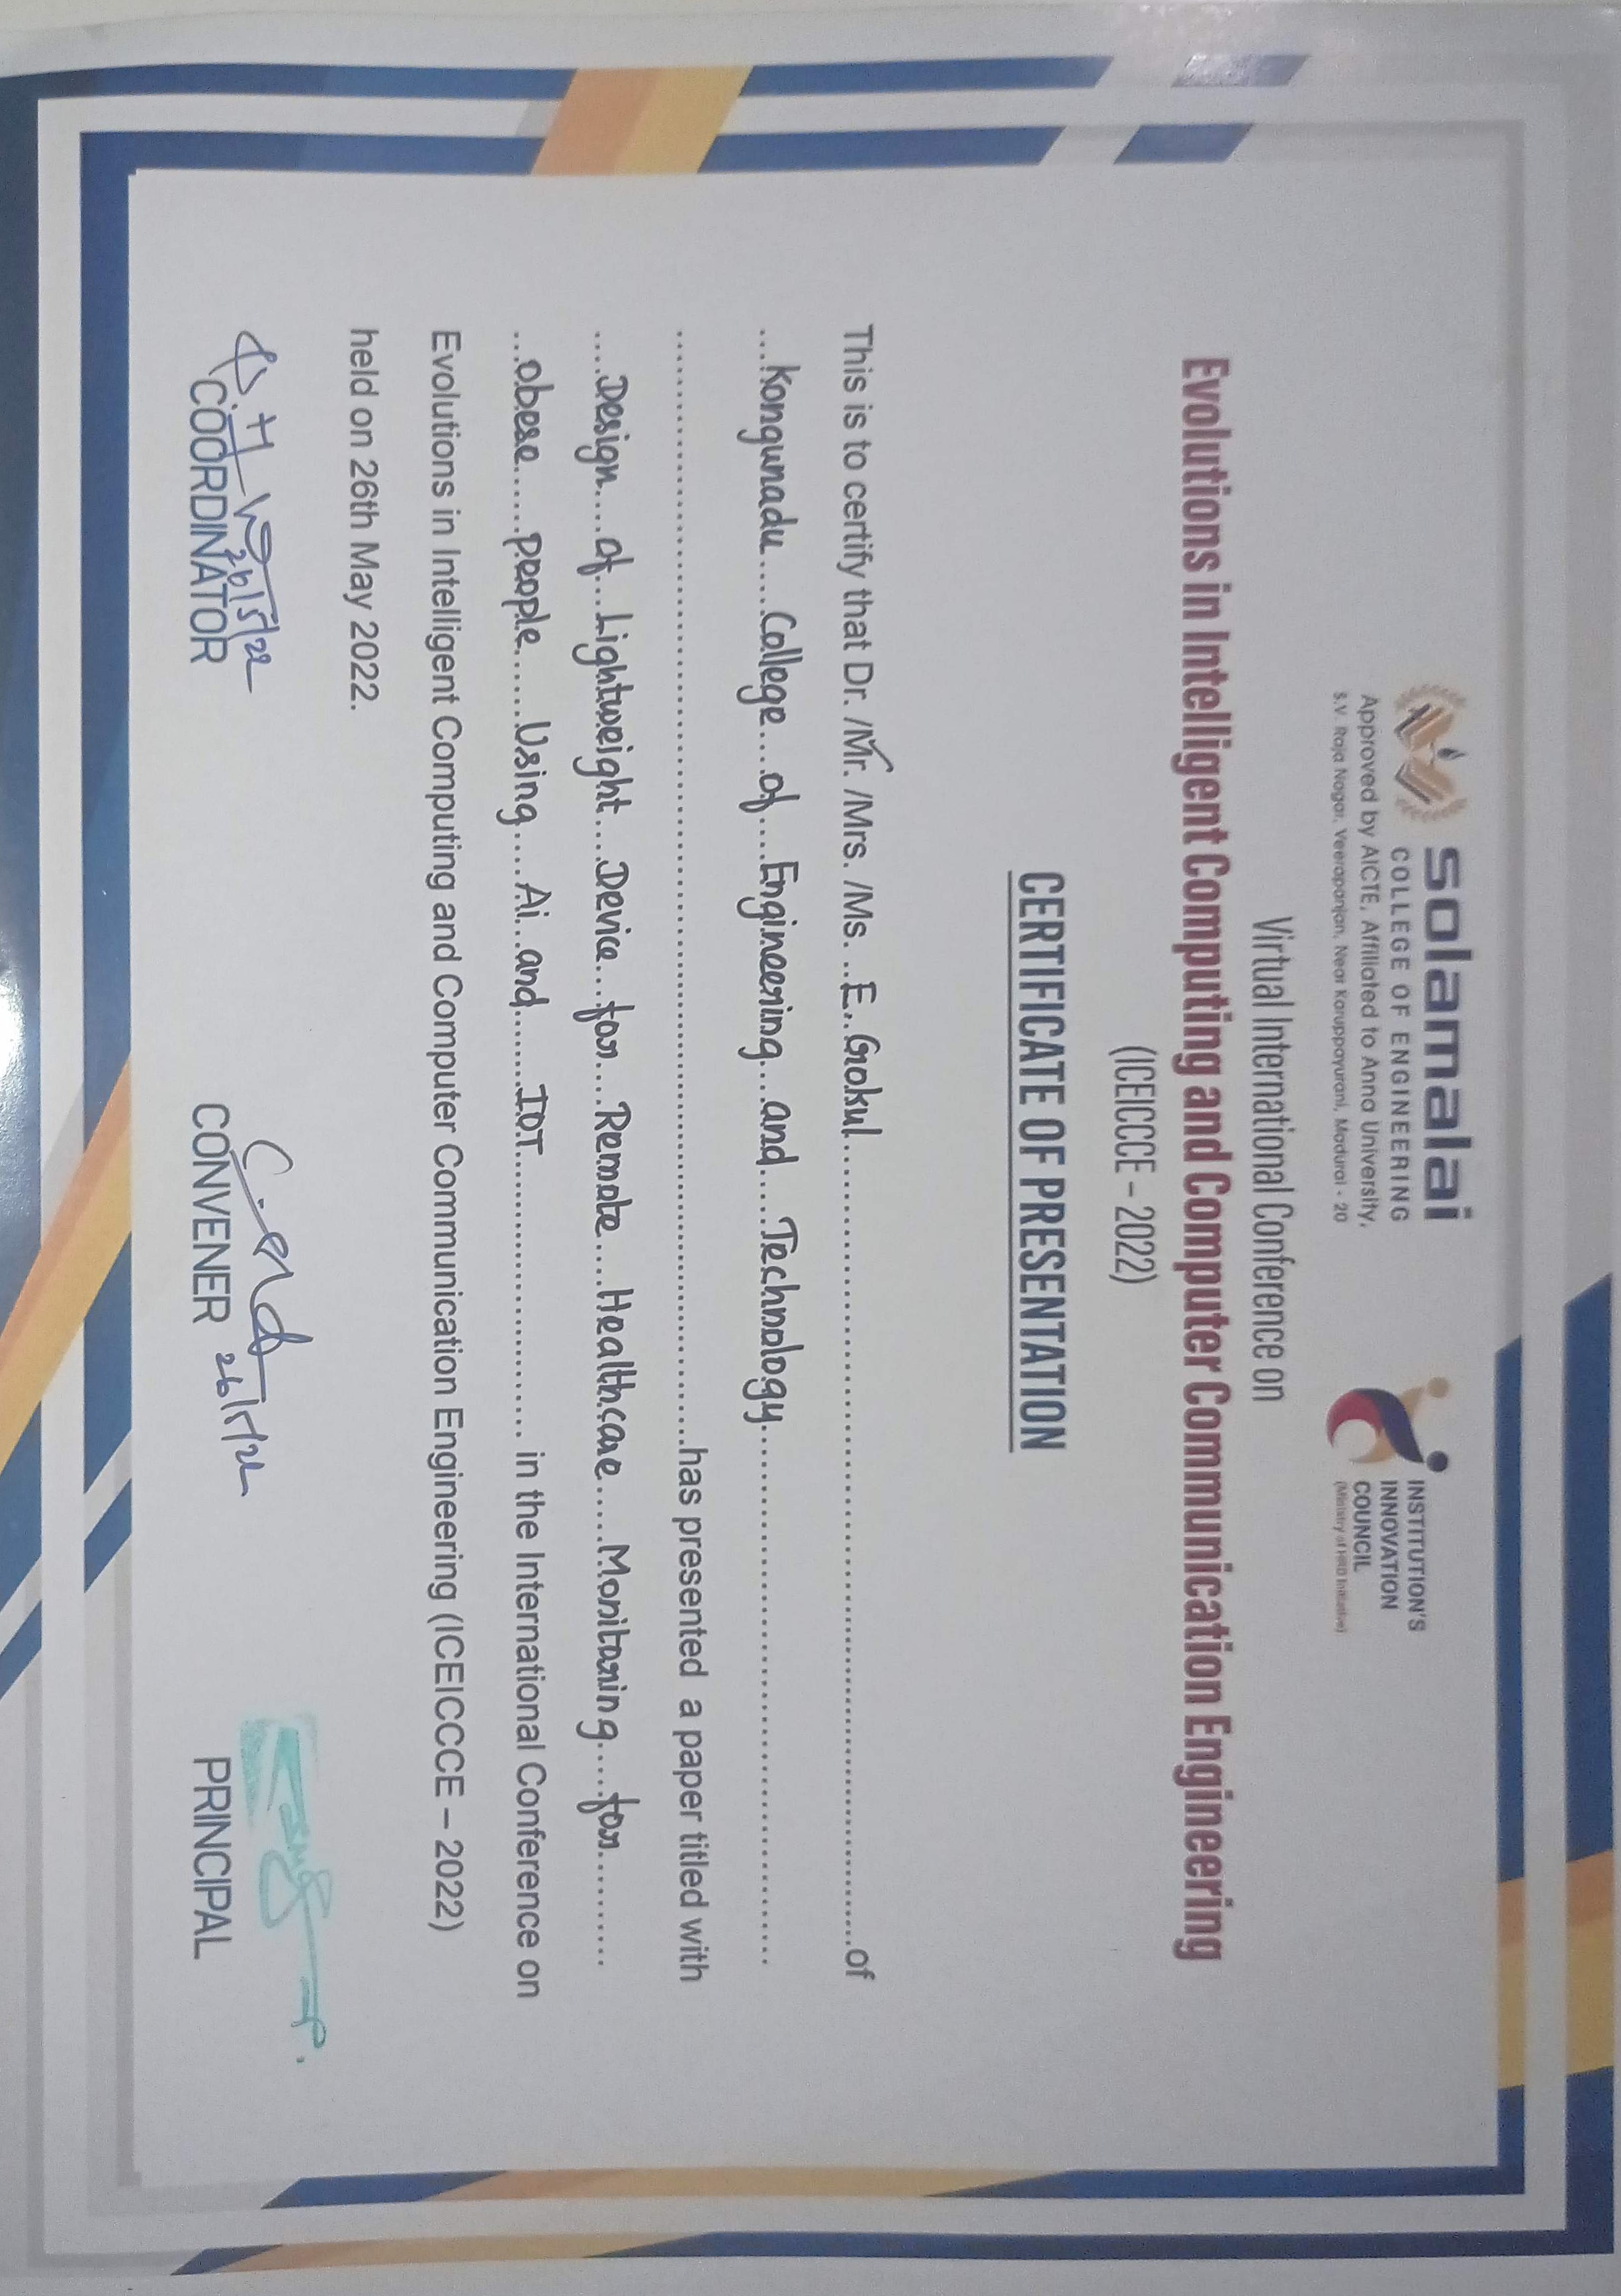 solamalai
COLLEGE OF ENGINEERING
Approved by AICTE, Affiliated to Anna University,
S.V. Raja Nagar, Veerapanjan, Near Karuppayurani, Madurai - 20
INSTITUTION'S
INNOVATION
COUNCIL
(Ministry of HRD Initiative)
Virtual International Conference on
Evolutions in Intelligent Computing and Computer Communication Engineering
(ICEICCCE – 2022)
CERTIFICATE OF PRESENTATION
This is to certify that Dr. /Mr. /Mrs. /Ms. E. Gokul of
Kongunadu College of Engineering and Technology
has presented a paper titled with
Design of Lightweight Device for Remote Healthcare Monitoring for
obese people Using Ai and IOT in the International Conference on
Evolutions in Intelligent Computing and Computer Communication Engineering (ICEICCCE – 2022)
held on 26th May 2022.
26/5/22
26/5/22
COORDINATOR CONVENER PRINCIPAL